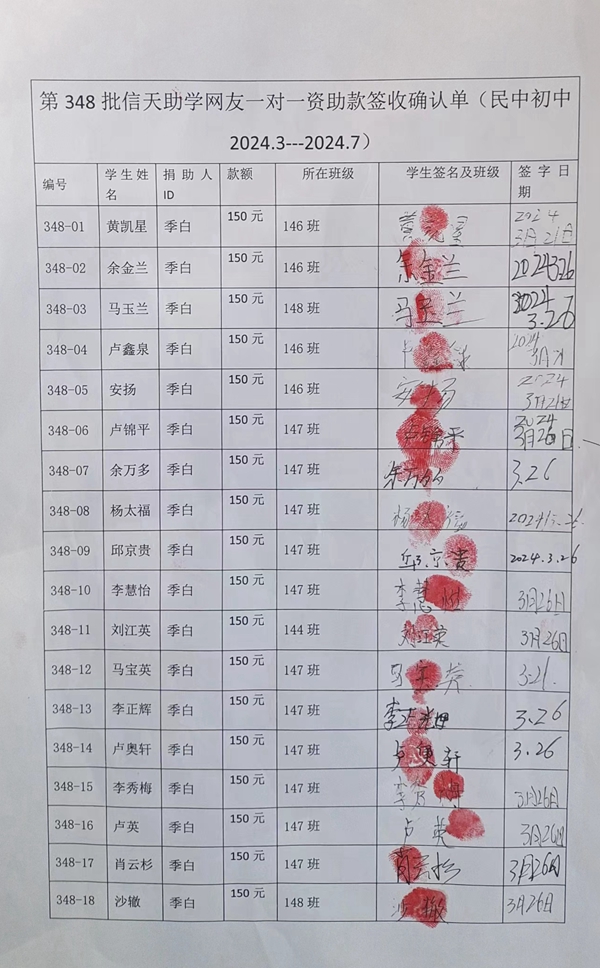 第 348 批信天助学网友一对一资助款签收确认单（民中初中
2024.3---2024.7）
编号 学生姓名 捐助人ID 款额 所在班级 学生签名及班级 签字日期
348-01 黄凯星 季白 150 元 146 班 黄凯星 2024 3月21日
348-02 余金兰 季白 150 元 146 班 余金兰 2024 3 26
348-03 马玉兰 季白 150 元 148 班 马玉兰 2024 3.26
348-04 卢鑫泉 季白 150 元 146 班 卢鑫泉 2024
348-05 安扬 季白 150 元 146 班 安扬 2024 3月21日
348-06 卢锦平 季白 150 元 147 班 卢锦平 2024 3月26日
348-07 余万多 季白 150 元 147 班 余万多 3.26
348-08 杨太福 季白 150 元 147 班 杨太福
348-09 邱京贵 季白 150 元 147 班 邱京贵 2024.3.26
348-10 李慧怡 季白 150 元 147 班 李慧怡 3月26日
348-11 刘江英 季白 150 元 144 班 刘江英 3月26日
348-12 马宝英 季白 150 元 147 班 马宝英 3.21.
348-13 李正辉 季白 150 元 147 班 李正辉 3.26
348-14 卢奥轩 季白 150 元 147 班 卢奥轩 3.26
348-15 李秀梅 季白 150 元 147 班 李秀梅 3月26日
348-16 卢英 季白 150 元 147 班 卢英 3月26日
348-17 肖云杉 季白 150 元 147 班 肖云杉 3月26日
348-18 沙辙 季白 150 元 148 班 沙辙 3月26日